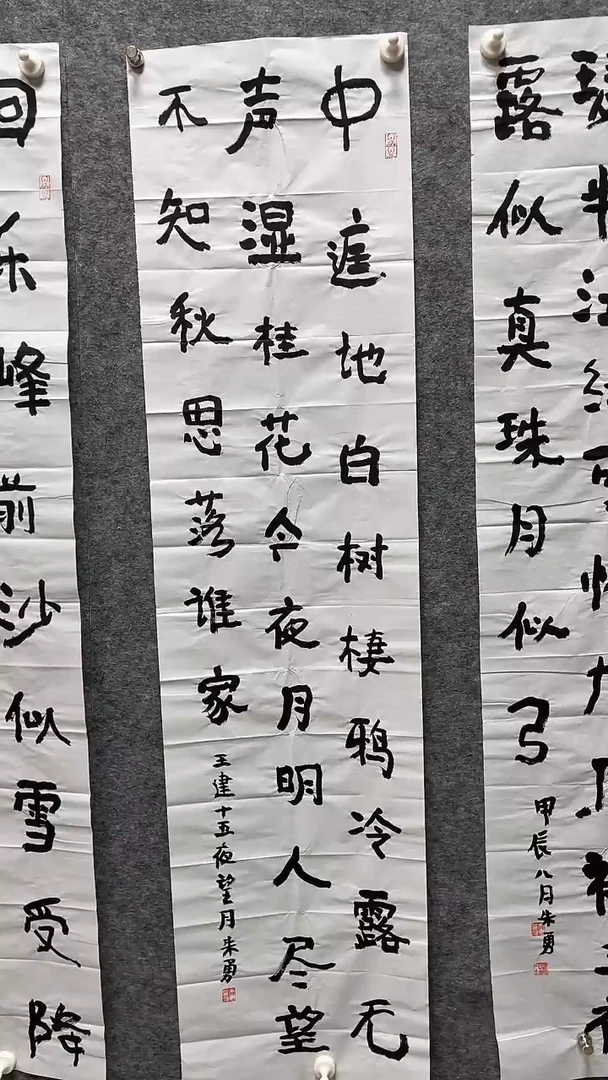 瑟半江红可怜九月初三夜
露似真珠月似弓
甲辰八月朱勇
中庭地白树棲鸦冷露无
声湿桂花今夜月明人尽望
不知秋思落谁家
王建十五夜望月朱勇
回乐峰前沙似雪受降